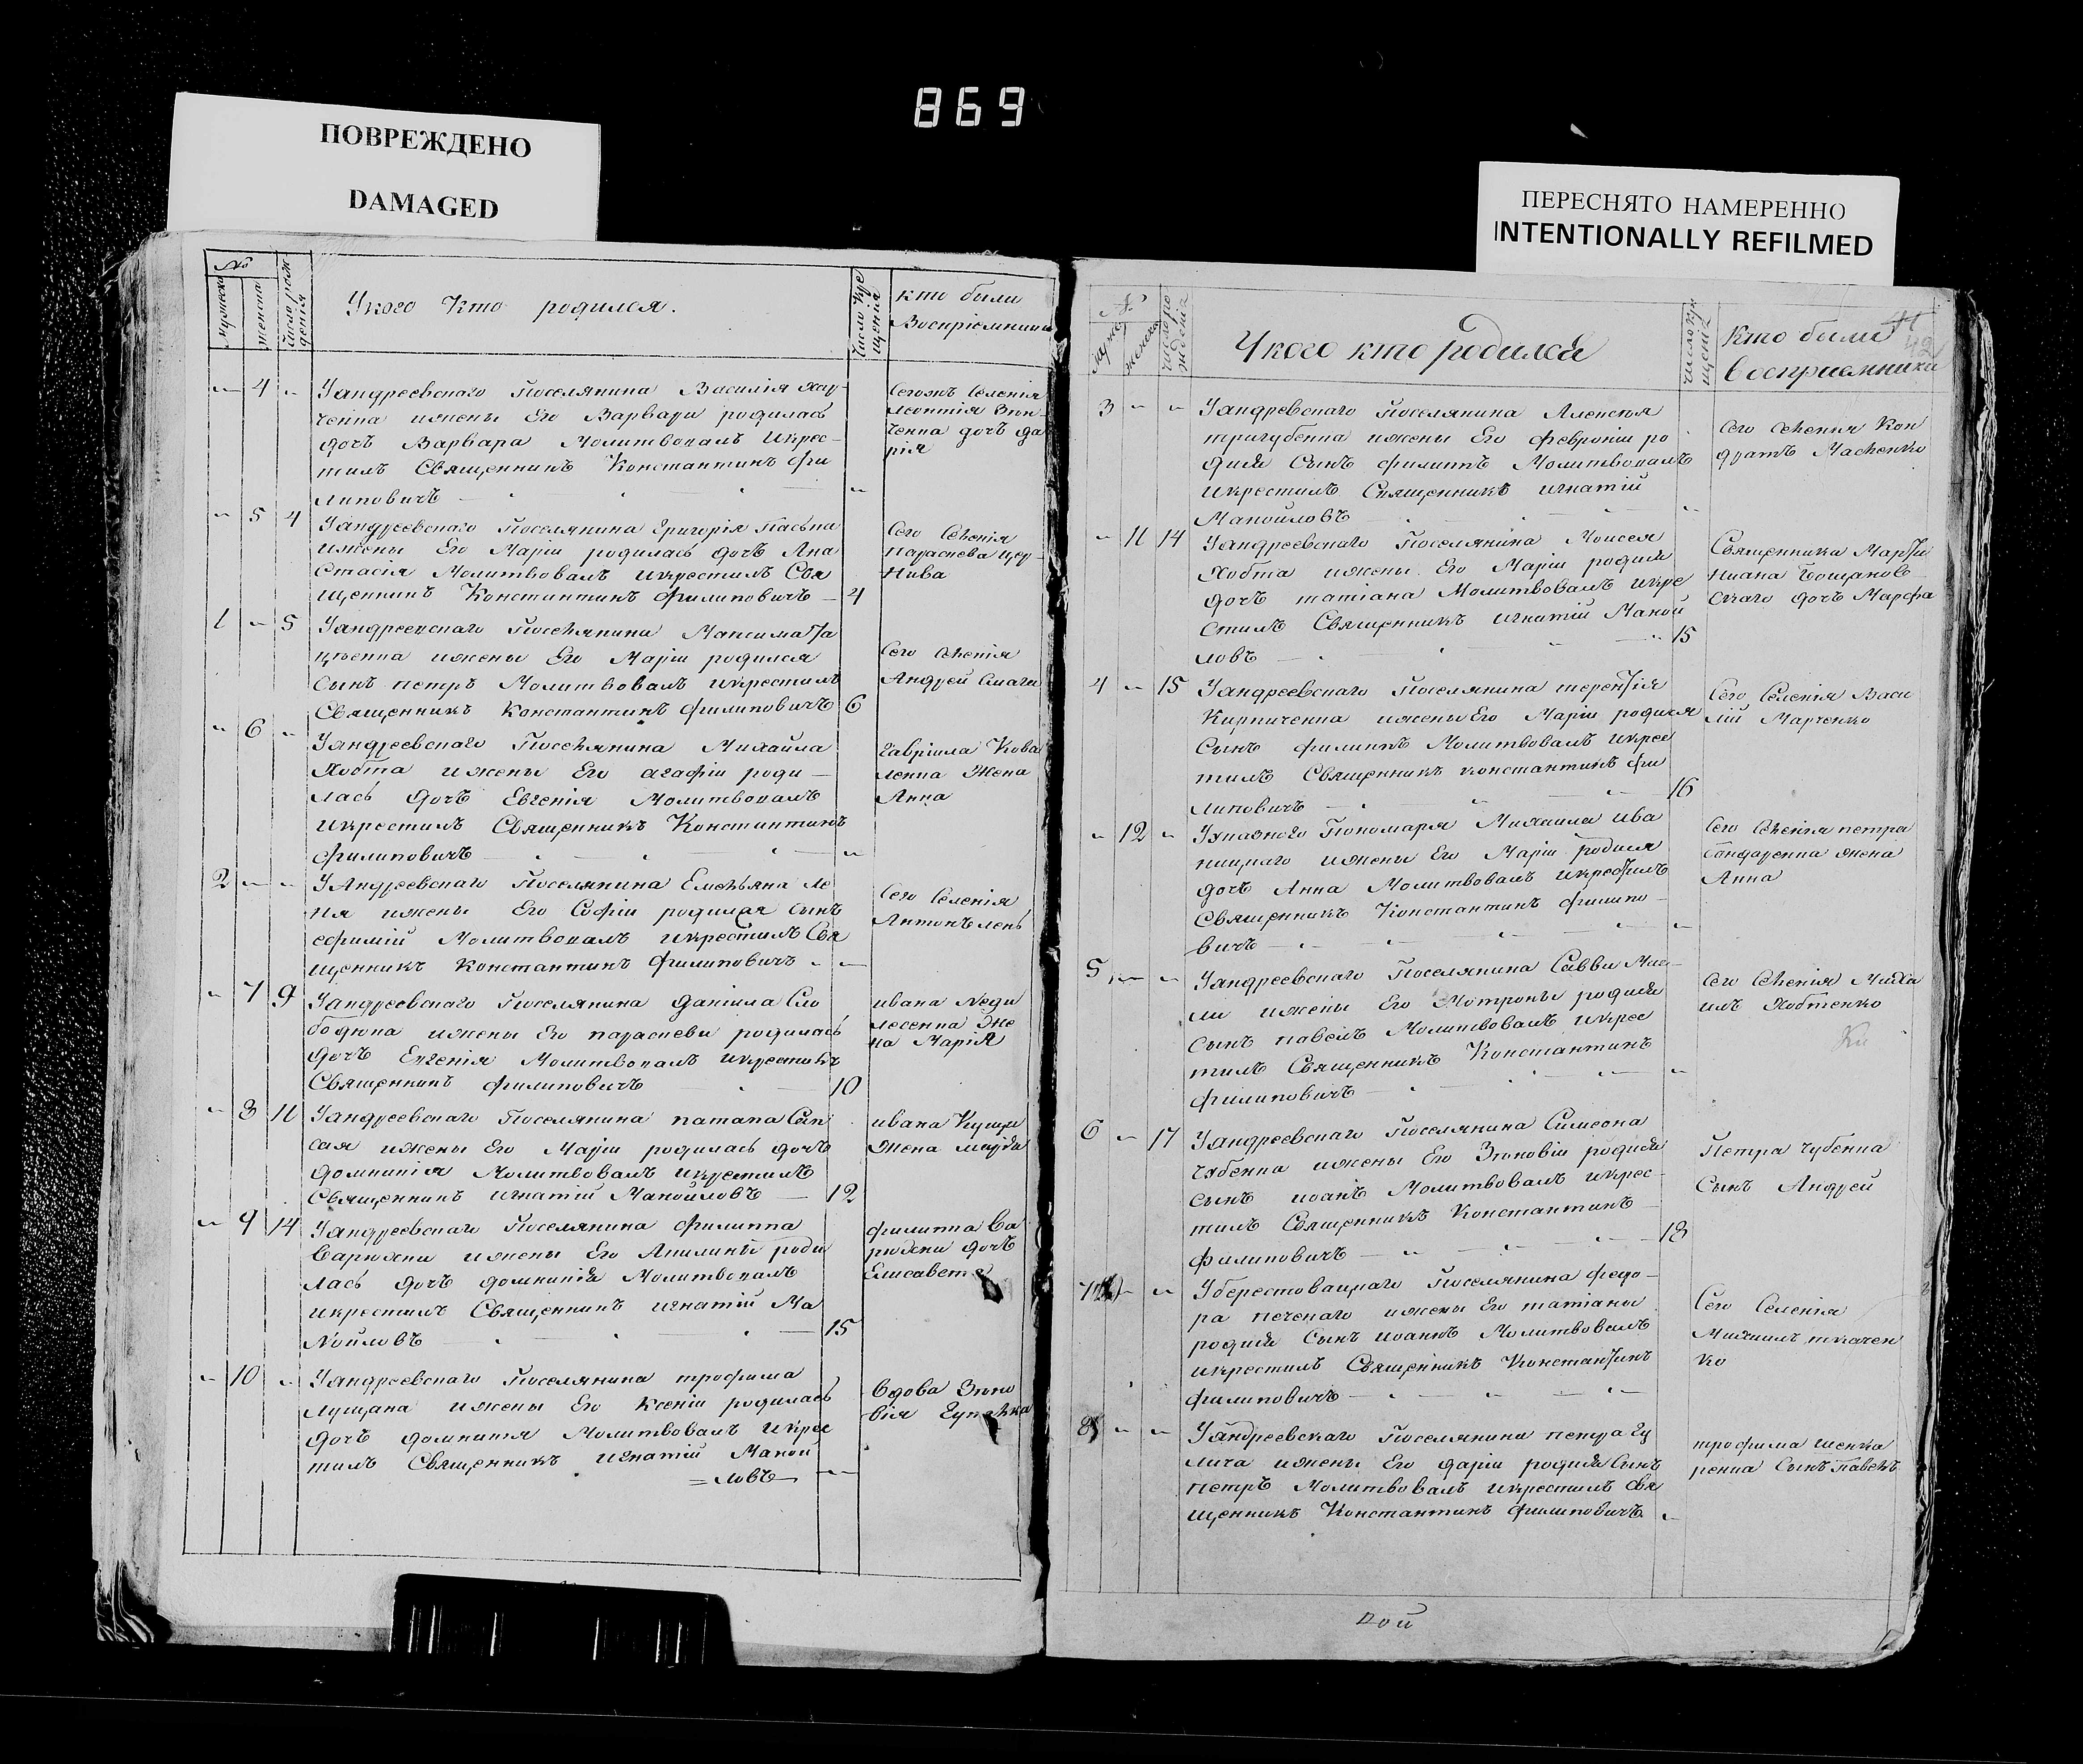 869
ПОВРЕЖДЕНО
DAMAGED
ПЕРЕСНЯТО НАМЕРЕННО
INTENTIONALLY REFILMED
№
женска
число рож
дения
Укого кто родился.
Число кре
щения
кто были
Воспріемники
4
Уандреевскаго Поселянина Василія Хар-
ченка ижены Его Варвары родилась
дочь Варвара Молитвовалъ Икрес-
тилъ Священникъ Константинъ Фи
липовичъ
Леонтія
дочь да
рія
5 4
Уандреевскаго Поселянина Григорія
ижены Его Маріи родилась дочь Ана
стасія Молитвовалъ икрестилъ Свя
щенникъ Константинъ Филиповичъ 4
Сего Селенія
1 5
Уандреевскаго Поселянина Максима
ижены Его Маріи родился
сынъ петръ Молитвовалъ икрестилъ
Священникъ Константинъ Филиповичъ 6
Сего Селенія
Андрей
6
Уандреевскаго Поселянина Михайла
Хобта ижены Его агафіи роди
лась дочь Евгенія Молитвовалъ
Икрестилъ Священникъ Константинъ
Филиповичъ
Гавріила Кова
ленка Жена
Анна
2
Уандреевскаго Поселянина Емельяна Ле
ня ижены Его Софіи родился сынъ
ефимій Молитвовалъ икрестилъ Свя
щенникъ Константинъ Филиповичъ
Сего Селенія
Антонъ лень
7 9
Уандреевскаго Поселянина даніила Сло
бодюна ижены Его параскеви родилась
дочь Евгенія Молитвовалъ икрестилъ
Священникъ Филиповичъ 10
ивана
Же
на Марія
8 11
Уандреевскаго Поселянина патапа
ижены Его Маріи родилась дочь
домникія Молитвовалъ икрестилъ
Священникъ игнатій Манойловъ 12
ивана
Жена
9 14
Уандреевскаго Поселянина филиппа
Варюхни ижены Его Акилины роди
лась дочь домникія Молитвовалъ
икрестилъ Священникъ игнатій Ма
нойловъ 15
филиппа Ва
рюхни дочь
Елисавета
10
Уандреевскаго Поселянина трофима
лущана ижены Его Ксеніи родилась
дочь домникия Молитвовалъ Икрес
тилъ Священникъ Игнатій Маной
=ловъ
Вдова Зѣно
вія
№
женска
число ро
жденія
Укого кто родился
число кре
щенія
кто были
восприемники
42
3
Уандревскаго Поселянина Алексея
тригубенка ижены Его Февроніи ро
дися Сынъ филиппъ Молитвовалъ
икрестилъ Священникъ игнатій
Манойловъ
Сего селенія Кон
дратъ Масленко
11 14
Уандреевскаго Поселянина Моисея
Хобта ижены Его Маріи родися
дочь татіана Молитвовалъ икре
стилъ Священникъ игнатій Маной
ловъ 15
Священника
дочь Марфа
4 15
Уандреевскаго Поселянина терентія
Кириченка ижены Его Маріи родился
Сынъ филиппъ Молитвовалъ икрес
тилъ Священникъ константинъ фи
липовичъ 16
Сего Селенія Васи
лій Марченко
12
Пономаря Михаила ива
ницкаго ижены Его Маріи родися
дочь Анна Молитвовалъ икрестилъ
Священникъ Константинъ филипо
вичъ
Сего Селенія петра
бондаренка жена
Анна
5
Уандреевскаго Поселянина Саввы
ижены Его Мотроны родися
сынъ павелъ Молитвовалъ икрес
тилъ Священникъ Константинъ
филиповичъ
Сего Селенія Миха
илъ Хобтенко
6 17
Уандреевскаго Поселянина Симеона
Чубенка ижены Его Зѣновіи родися
сынъ иоанъ Молитвовалъ икрес
тилъ Священникъ Константинъ
Филиповичъ 18
Петра Чубенка
Сынъ Андрей
7
Уберестоваџкаго Поселянина федо
ра печенаго ижены Его татіаны
родися Сынъ иоаннъ Молитвовалъ
икрестилъ Священникъ Константинъ
филиповичъ
Сего Селенія
Михаилъ ткачен
ко
8
Уандреевскаго Поселянина петра Гу
лича ижены Его даріи родися Сынъ
петръ Молитвовалъ икрестилъ Свя
щенникъ Константинъ филиповичъ
трофима
Сынъ Павелъ